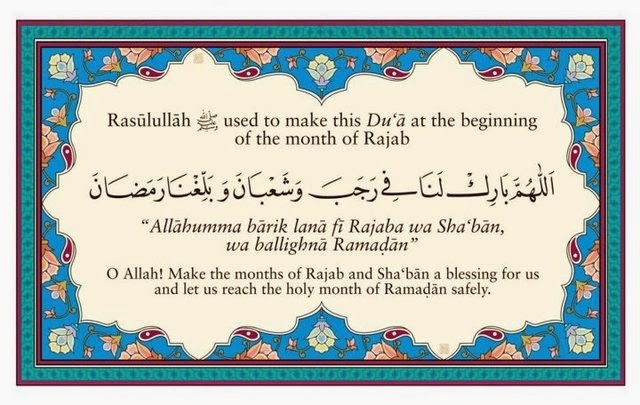 Rasūlullāh ﷺ used to make this Du‘ā at the beginning
of the month of Rajab
اَللّٰهُمَّ بَارِكْ لَنَا فِي رَجَبَ وَشَعْبَانَ وَ بَلِّغْنَا رَمَضَانَ
“Allāhumma bārik lanā fī Rajaba wa Sha‘bān,
wa ballighnā Ramaḍān”
O Allah! Make the months of Rajab and Sha‘bān a blessing for us
and let us reach the holy month of Ramaḍān safely.